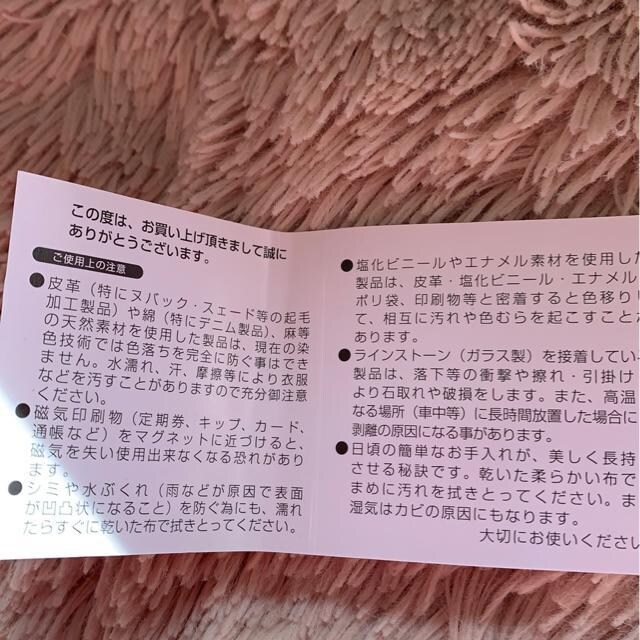 この度は、お買い上げ頂きまして誠に
ありがとうございます。
ご使用上の注意
●皮革（特にヌバック・スェード等の起毛
加工製品）や綿（特にデニム製品）、麻等
の天然素材を使用した製品は、現在の染
色技術では色落ちを完全に防ぐ事はでき
ません。水濡れ、汗、摩擦等により衣服
などを汚すことがありますので充分御注意
ください。
●磁気印刷物（定期券、キップ、カード、
通帳など）をマグネットに近づけると、
磁気を失い使用出来なくなる恐れがあり
ます。
●シミや水ぶくれ（雨などが原因で表面
が凹凸状になること）を防ぐ為にも、濡れ
たらすぐに乾いた布で拭きとってください。
●塩化ビニールやエナメル素材を使用した
製品は、皮革・塩化ビニール・エナメル
ポリ袋、印刷物等と密着すると色移り
て、相互に汚れや色むらを起こすこと
あります。
●ラインストーン（ガラス製）を接着してい
製品は、落下等の衝撃や擦れ・引掛け
より石取れや破損をします。また、高温
なる場所（車中等）に長時間放置した場合に
剥離の原因になる事があります。
●日頃の簡単なお手入れが、美しく長持
させる秘訣です。乾いた柔らかい布で
まめに汚れを拭きとってください。ま
湿気はカビの原因にもなります。
大切にお使いください